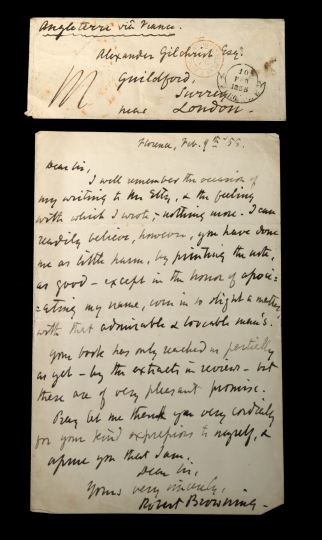 Angleterre viâ France.
Alexander Gilchrist Esq.
Guildford,
Surrey
near London.
10
1855
Florence, Feb. 9th '55.
Dear Sir,
I well remember the occasion of
my writing to Mr Etty, & the feeling
with which I wrote, - nothing more. I can
readily believe, however, you have done
me as little harm, by printing the note,
as good - except in the honor of associ=
=ating my name, even in so slight a matter,
with that admirable & loveable man's.
Your book has only reached us partially
as yet - by the extracts in reviews - but
these are of very pleasant promise.
Pray let me thank you very cordially
for your kind expressions to myself, &
assure you that I am,
Dear Sir,
Yours very sincerely,
Robert Browning -